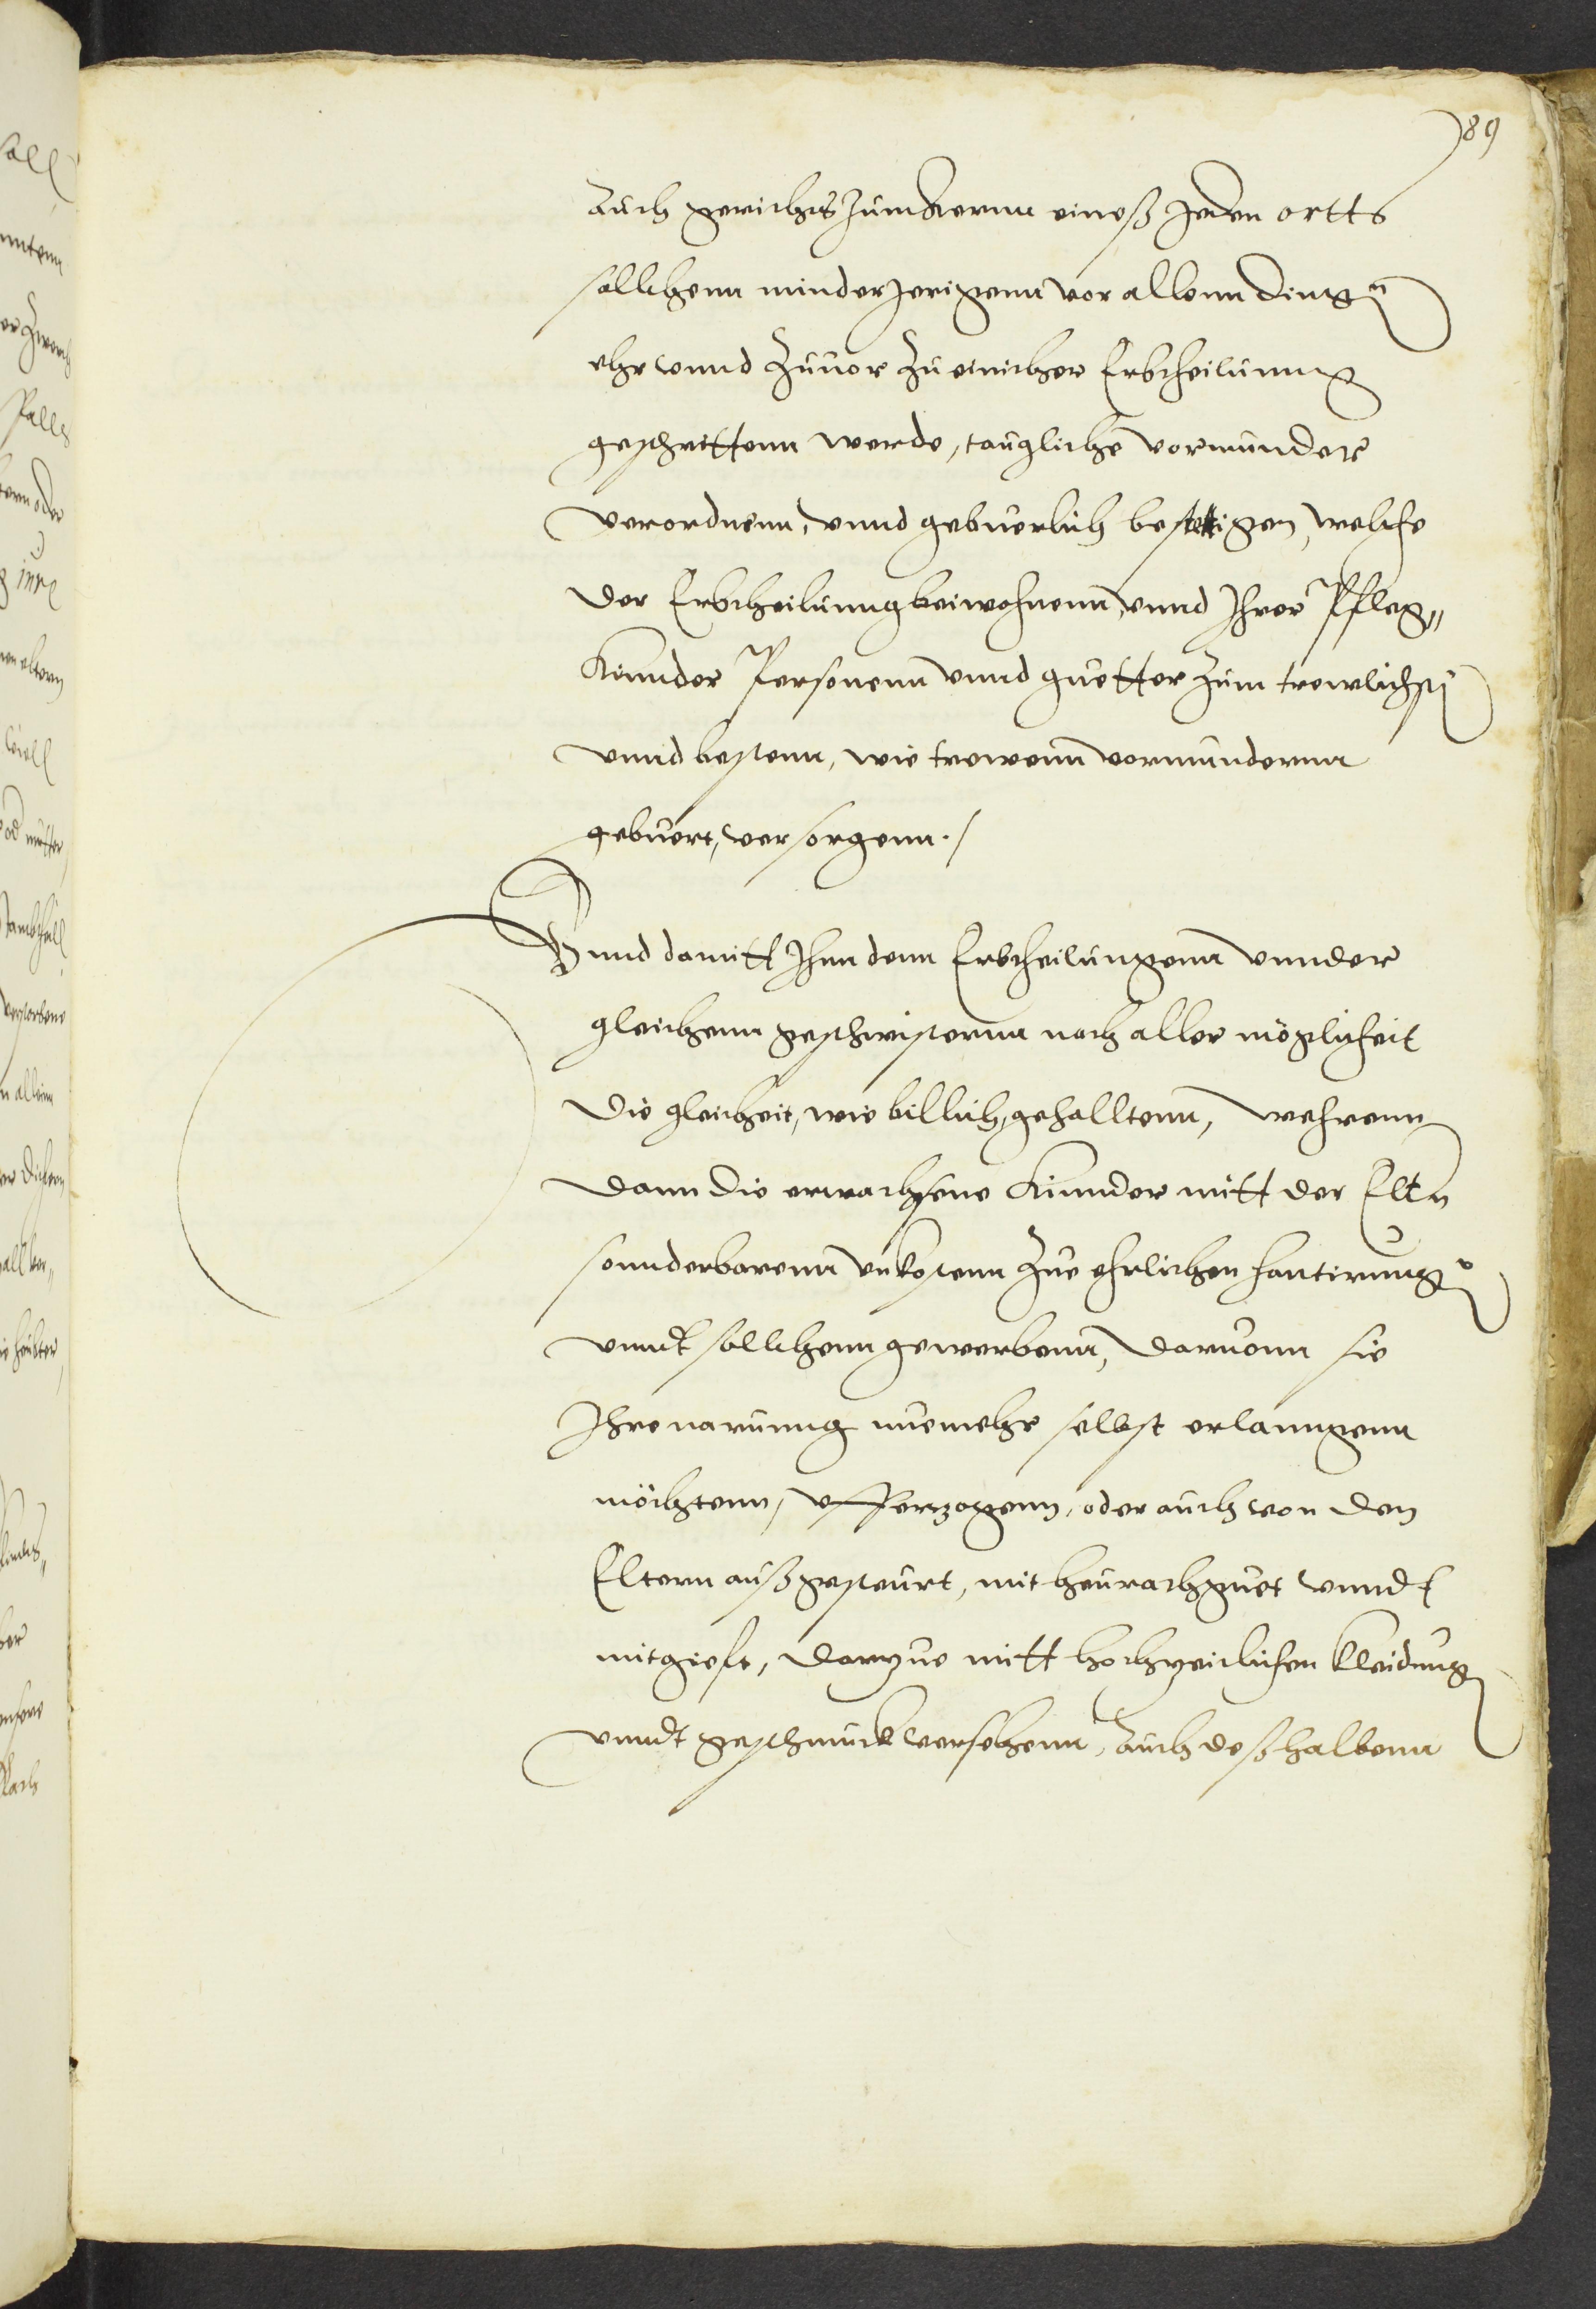 89
Auch gerichts Junckernn eineß Jeden ortts
sollchenn minderjerigenn vor allenn dingen
ehr vnnd zuuor zu einicher Erbtheilunng
geschrittenn werde, taugliche vormunder
verordnenn, vnnd gebuerlich bestettigen, welche
der Erbtheilunng beiwohnenn, vnnd Ihrer Pfleg„
Kinnder Personenn vnnd guetter zum trewlichsten
vnnd bestenn, wie trewenn vormundernn
gebuert, versorgenn./
Vnnd damitt Ihnn denn Erbtheilungenn vnnder
gleichenn geschwisternn nach aller möglicheit
die gleicheit, wie billich, gehalltenn, wehrenn
dann die erwachsene Kinnder mitt der Elltern
sonnderbarenn vnkostenn zue ehrlichen hantirunge
vnndt sollchenn gewerbenn, daruonn sie
Ihre narunng nuemehr selbst erlanngenn
möchtenn, vfferzogenn, oder auch von den
Eltern außgesteurt, mit heurathguet vnndt
mitgieft, darzue mitt hochzeitlichen kleidung
vnndt geschmuck versehenn, Auch deßhalbenn